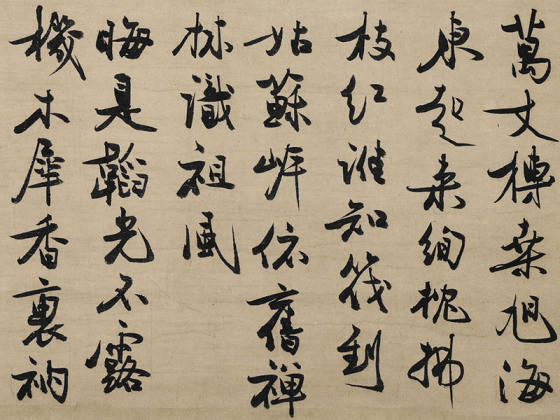 萬丈榑桑旭海
東起來絢拂
枝紅誰知筏到
姑蘇岸依舊禪
林識祖風
晦是韜光不露
機木犀香裏衲